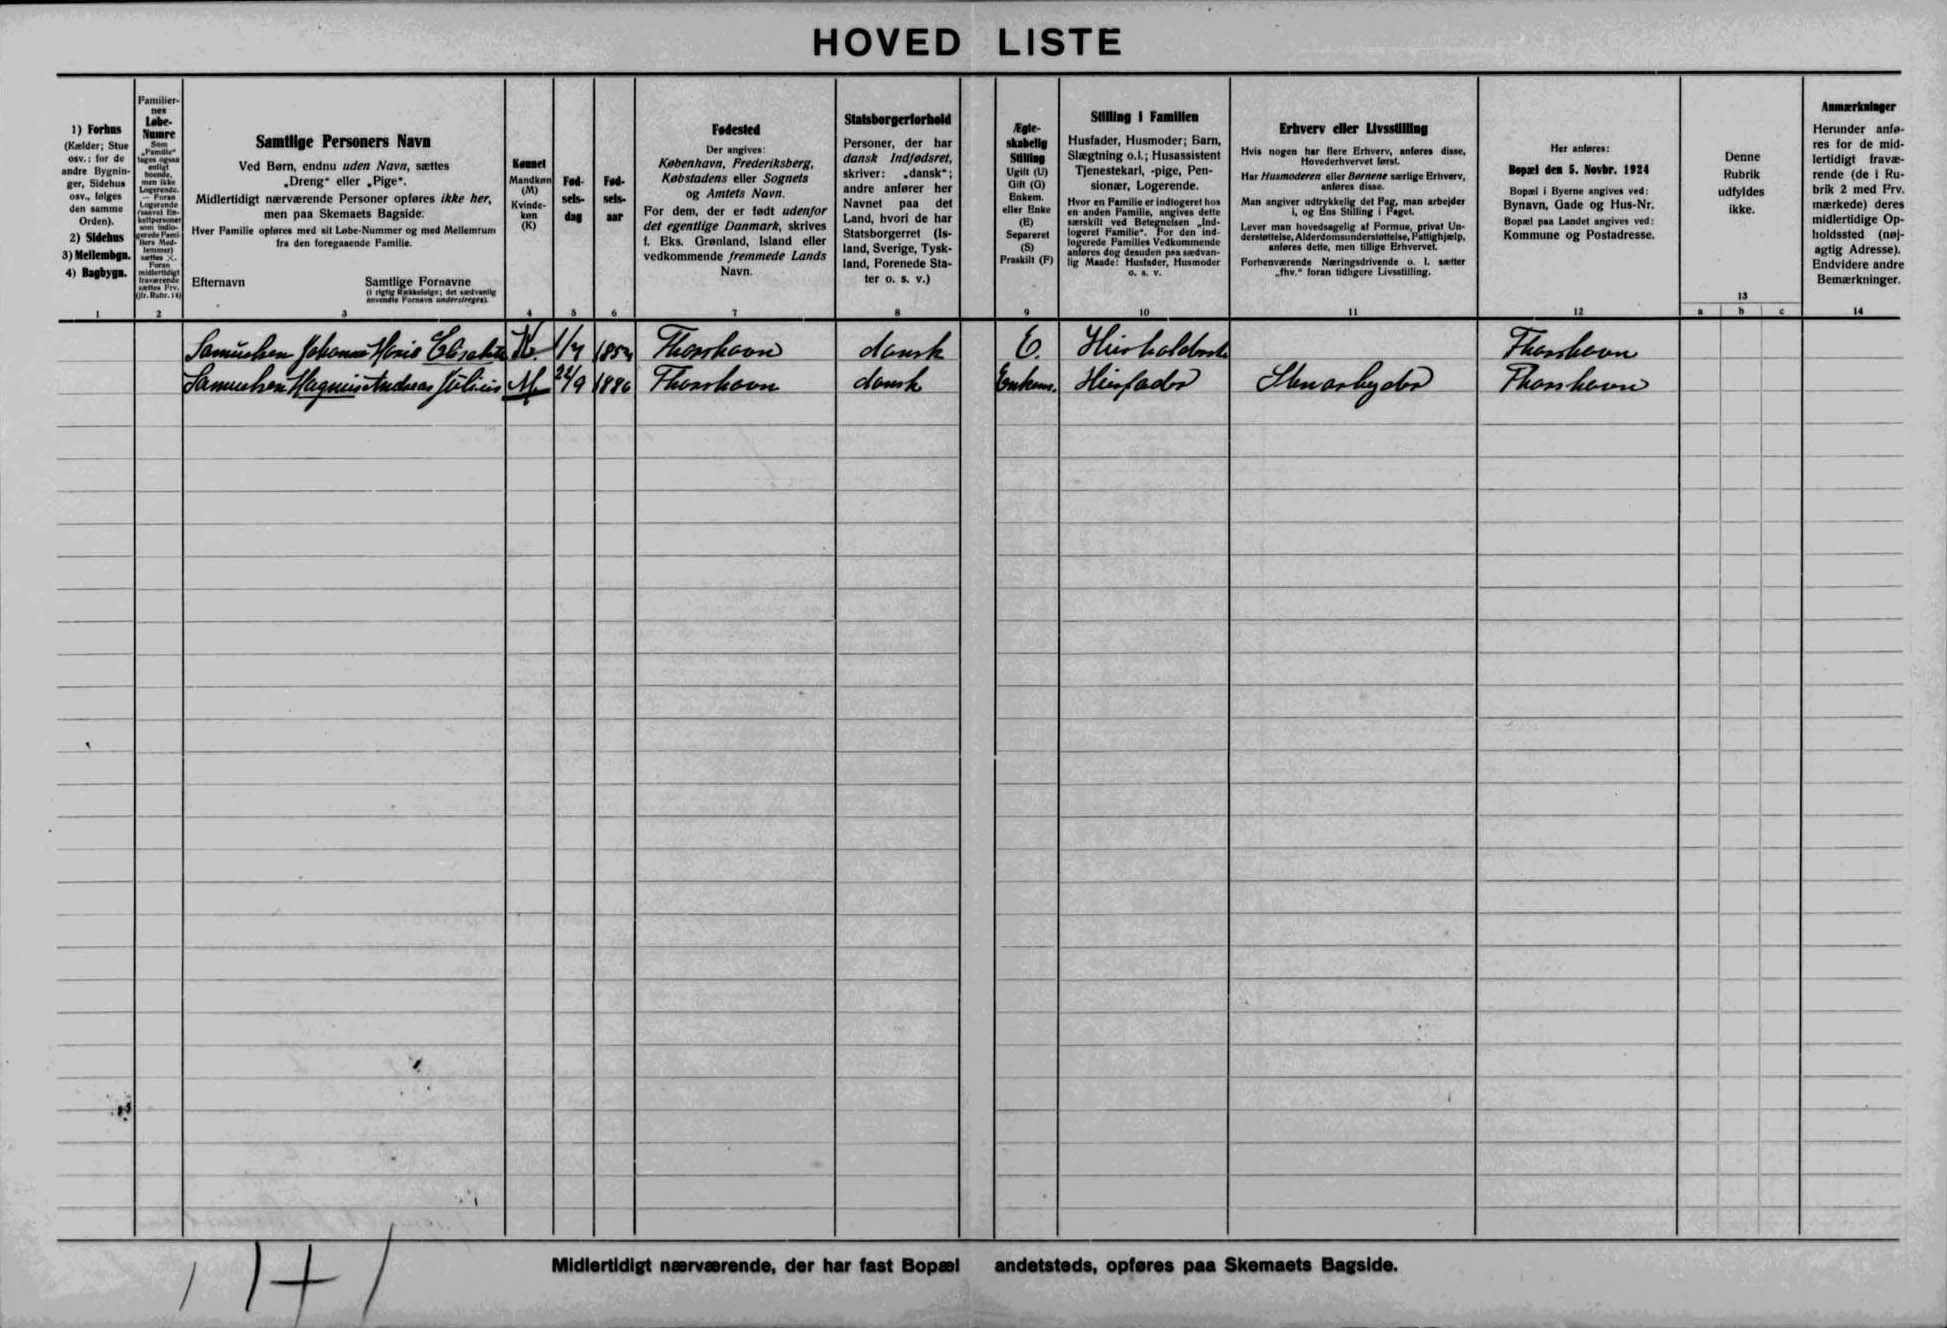 HOVED LISTE
1) Forhus
(Kælder; Stue
osv.: for de
andre Bygnin-
ger, Sidehus
osv., følges
den samme
Orden).
2) Sidehus
3) Mellembgn.
4) Bagbygn.
1
Familier-
nes
Løbe-
Numre
Som
„Familie"
tages ogsaa
enligt
boende,
men ikke
Logerende.
— Foran
Logerende
2
Samtlige Personers Navn
Ved Børn, endnu uden Navn, sættes
„Dreng" eller „Pige".
Midlertidigt nærværende Personer opføres ikke her,
men paa Skemaets Bagside.
Hver Familie opføres med sit Løbe-Nummer og med Mellemrum
fra den foregaaende Familie.
Efternavn Samtlige Fornavne
(i rigtig Rækkefølge; det sædvanlig
anvendte Fornavn understreges).
3
Kønnet
Mandkøn
(M)
Kvinde-
køn
(K)
4
Fød-
sels-
dag
5
Fød-
sels-
aar
6
Fødested
Der angives:
København, Frederiksberg,
Købstadens eller Sognets
og Amtets Navn.
For dem, der er født udenfor
det egentlige Danmark, skrives
f. Eks. Grønland, Island eller
vedkommende fremmede Lands
Navn.
7
Statsborgerforhold
Personer, der har
dansk Indfødsret,
skriver: „dansk";
andre anfører her
Navnet paa det
Land, hvori de har
Statsborgerret (Is-
land, Sverige, Tysk-
land, Forenede Sta-
ter o. s. v.)
8
Ægte-
skabelig
Stilling
Ugift (U)
Gift (G)
Enkem.
eller Enke
(E)
Separeret
(S)
Fraskilt (F)
9
Stilling i Familien
Husfader, Husmoder; Barn,
Slægtning o.l.; Husassistent
Tjenestekarl, -pige, Pen-
sionær, Logerende.
Hvor en Familie er indlogeret hos
en anden Familie, angives dette
særskilt ved Betegnelsen „Ind-
logeret Familie". For den ind-
logerede Families Vedkommende
anføres dog desuden paa sædvan-
lig Maade: Husfader, Husmoder
o. s. v.
10
Erhverv eller Livsstilling
Hvis nogen har flere Erhverv, anføres disse,
Hovederhvervet først.
Har Husmoderen eller Børnene særlige Erhverv,
anføres disse.
Man angiver udtrykkelig det Fag, man arbejder
i, og Ens Stilling i Faget.
Lever man hovedsagelig af Formue, privat Un-
derstøttelse, Alderdomsunderstøttelse, Fattighjælp,
anføres dette, men tillige Erhvervet.
Forhenværende Næringsdrivende o. l. sætter
„fhv." foran tidligere Livsstilling.
11
Her anføres:
Bopæl den 5. Novbr. 1924
Bopæl i Byerne angives ved:
Bynavn, Gade og Hus-Nr.
Bopæl paa Landet angives ved:
Kommune og Postadresse.
12
Denne
Rubrik
udfyldes
ikke.
13
a b c
Anmærkninger
Herunder anfø-
res for de mid-
lertidigt fravæ-
rende (de i Ru-
brik 2 med Frv.
mærkede) deres
midlertidige Op-
holdssted (nøj-
agtig Adresse).
Endvidere andre
Bemærkninger.
14
Samuelsen Johanne Marie Elisabeth K. 1/7 Thorshavn dansk E. Thorshavn
Samuelsen Magnus Andreas Julius M 24/9 1886 Thorshavn dansk Enkem. Husfader Stenarbejder Thorshavn
Midlertidigt nærværende, der har fast Bopæl andetsteds, opføres paa Skemaets Bagside.